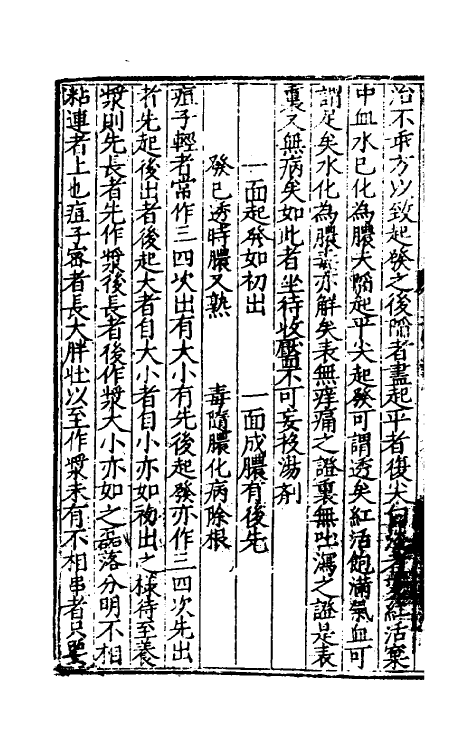 治不乖方以致起發之後陷者盡起平者復尖白者紅活窠
中血水已化為膿夫陷起平尖起發可謂透矣紅活飽滿氣血可
謂足矣水化為膿毒亦解矣表無痒痛之證裏無吐瀉之證是表
裏又無病矣如此者坐待收靨不可妄投湯劑
一面起發如初出　一面成膿有後先
發已透時膿又熟　毒隨膿化病除根
痘子輕者常作三四次出有大小有先後起發亦作三四次先出
者先起後出者後起大者自大小者自小亦如初出之樣待至養
漿則先長者先作漿後長者後作漿大小亦如之磊落分明不相
粘連者上也痘子密者長大胖壯以至作漿未有不相串者只要